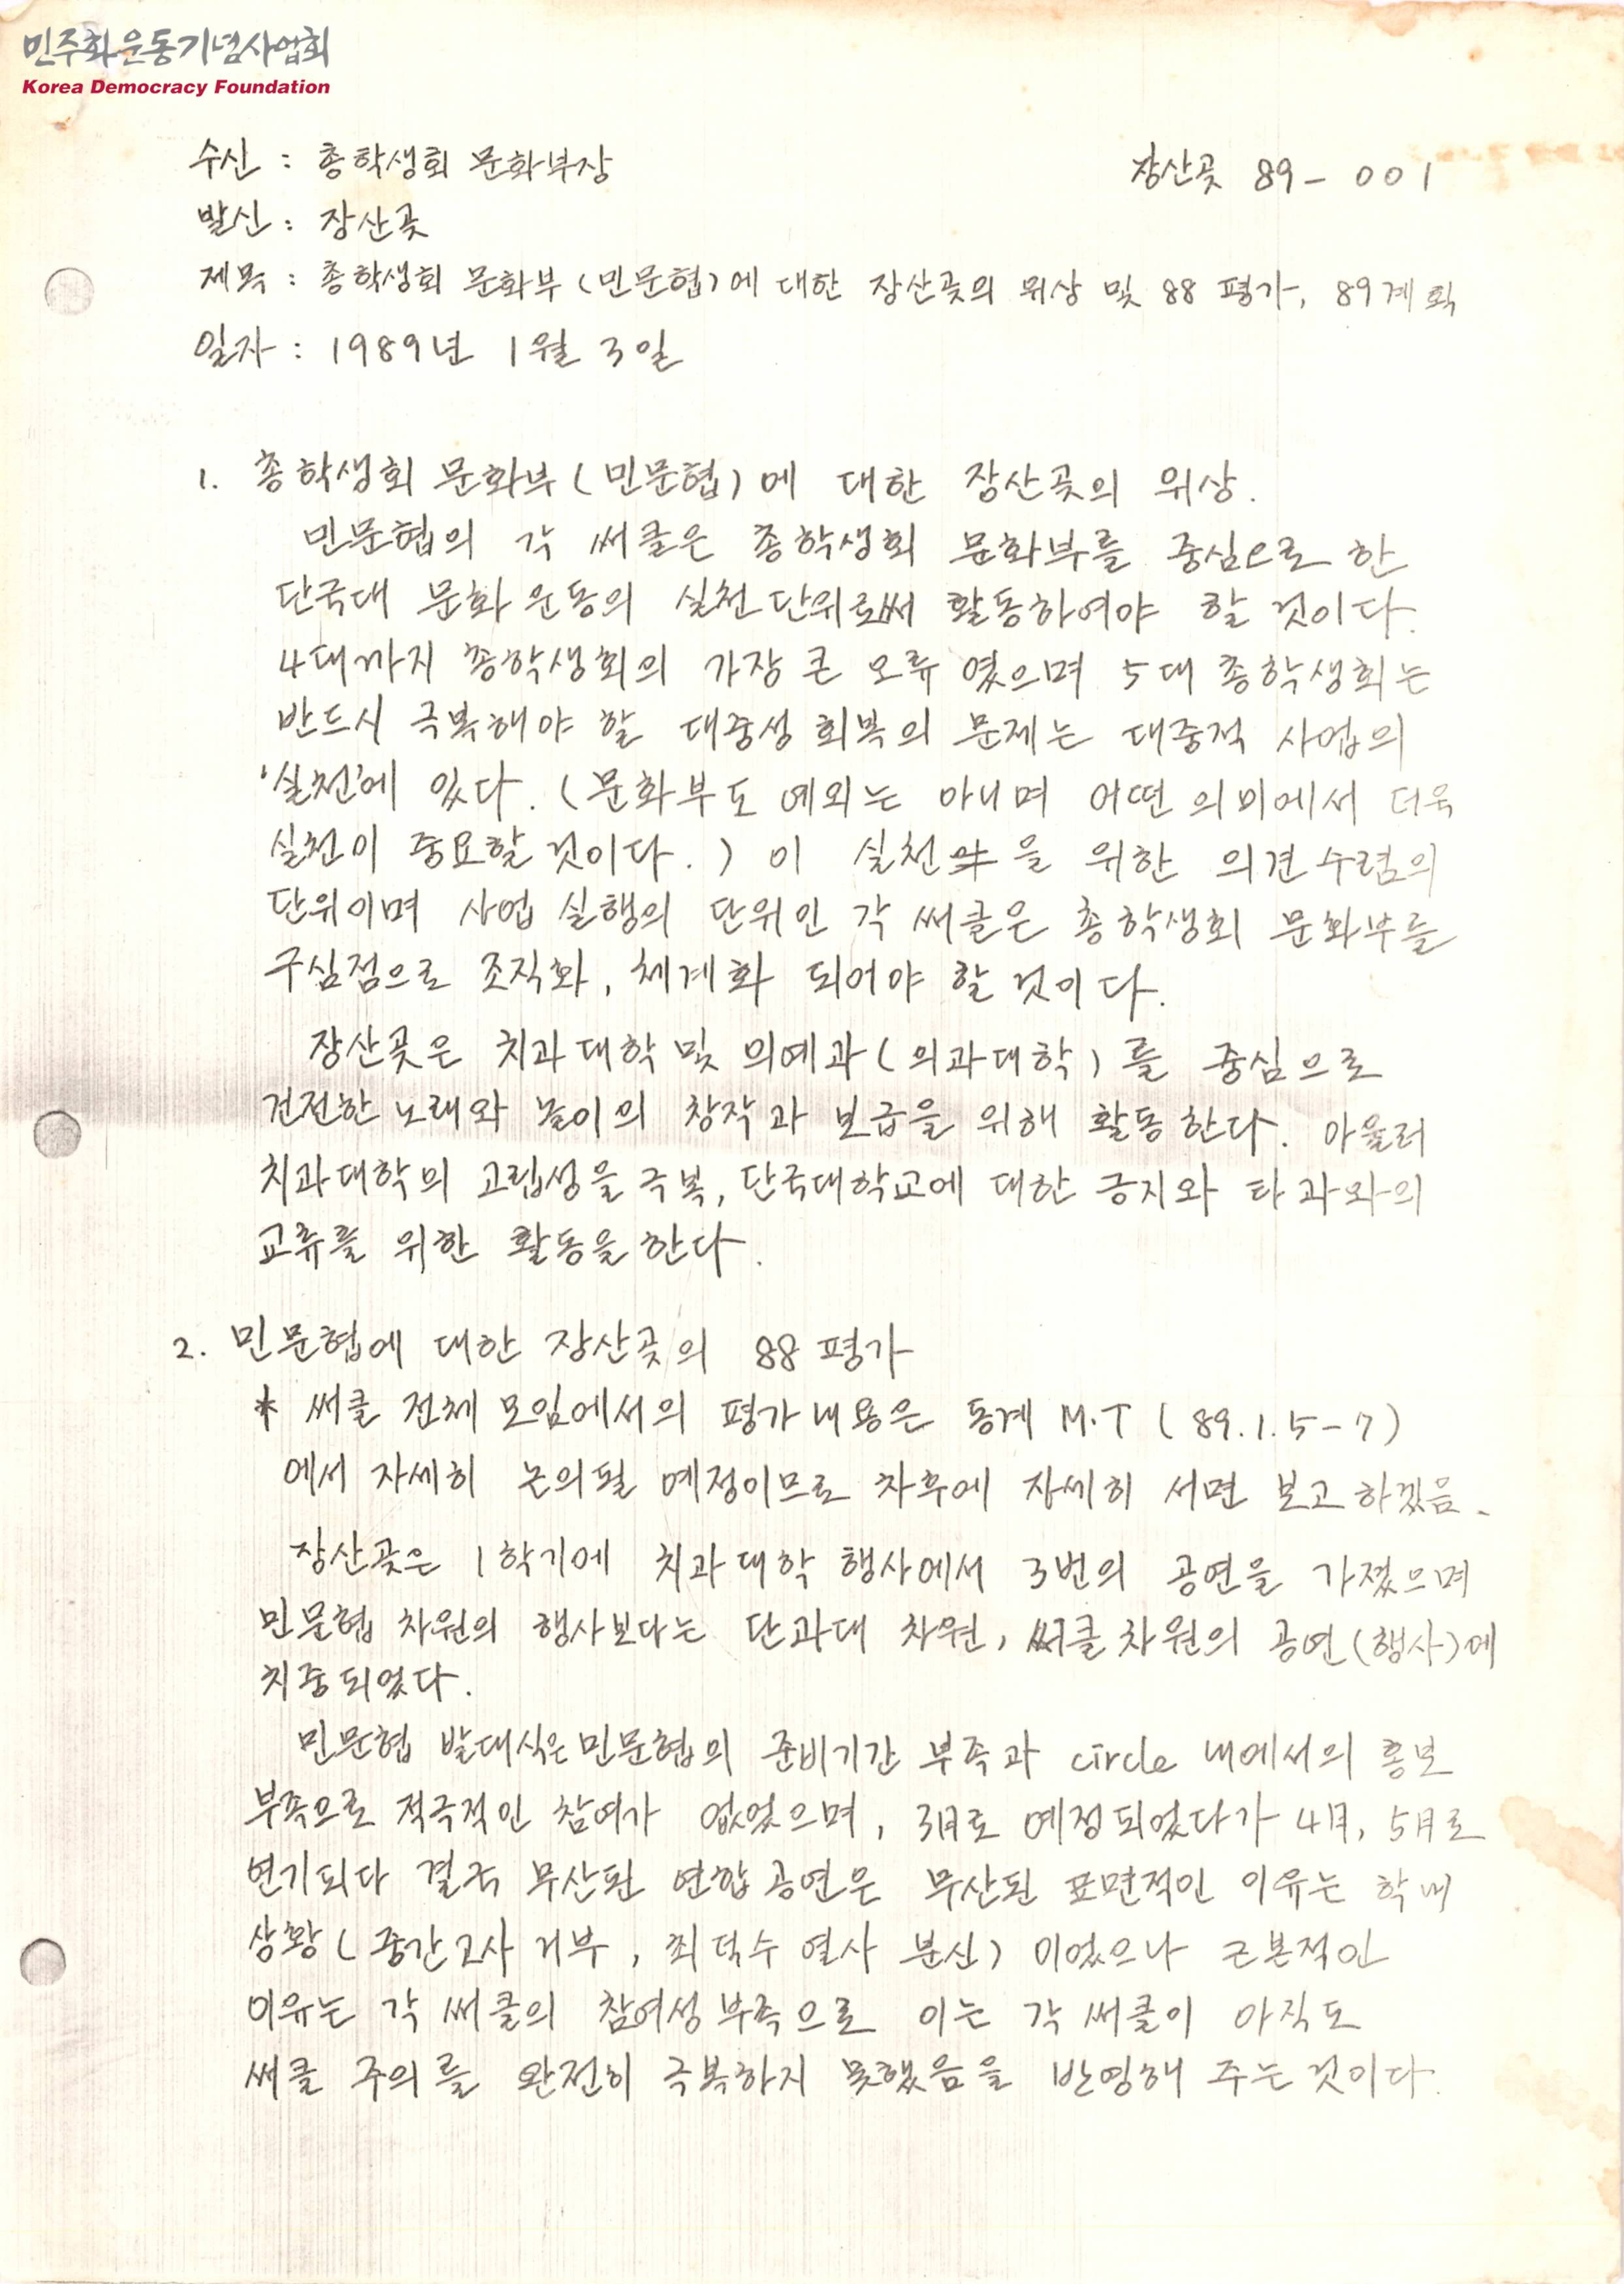 민주화운동기념사업회
Korea Democracy Foundation
수신 : 총학생회 문화부장
장산곶 89 - 001
발신 : 장산곶
제목 : 총학생회 문화부 (민문협)에 대한 장산곶의 위상 및 88 평가, 89계획
일자 : 1989년 1월 3일
1. 총학생회 문화부 (민문협)에 대한 장산곶의 위상.
민문협의 각 써클은 총학생회 문화부를 중심으로 한
단국대 문화 운동의 실천 단위로써 활동하여야 할 것이다.
4대까지 총학생회의 가장 큰 오류 였으며 5대 총학생회는
반드시 극복해야 할 대중성 회복의 문제는 대중적 사업의
'실천'에 있다. (문화부도 예외는 아니며 어떤 의미에서 더욱
실천이 중요할 것이다.) 이 실천 을 위한 의견수렴의
단위이며 사업 실행의 단위인 각 써클은 총학생회 문화부를
구심점으로 조직화, 체계화 되어야 할 것이다.
장산곶은 치과대학 및 의예과 (의과대학)를 중심으로
건전한 노래와 놀이의 창작과 보급을 위해 활동한다. 아울러
치과대학의 고립성을 극복, 단국대학교에 대한 긍지와 타과와의
교류를 위한 활동을 한다.
2. 민문협에 대한 장산곶의 88 평가
* 써클 전체 모임에서의 평가내용은 동계 M.T (89.1.5-7)
에서 자세히 논의될 예정이므로 차후에 자세히 서면 보고하겠음.
장산곶은 1학기에 치과대학 행사에서 3번의 공연을 가졌으며
민문협 차원의 행사보다는 단과대 차원, 써클차원의 공연(행사)에
치중되었다.
민문협 발대식은 민문협의 준비기간 부족과 circle 내에서의 홍보
부족으로 적극적인 참여가 없었으며, 3月로 예정되었다가 4月, 5月로
연기되다 결국 무산된 연합공연은 무산된 표면적인 이유는 학내
상황 (중간고사 거부, 최덕수 열사 분신) 이었으나 근본적인
이유는 각 써클의 참여성 부족으로 이는 각 써클이 아직도
써클 주의를 완전히 극복하지 못했음을 반영해 주는 것이다.